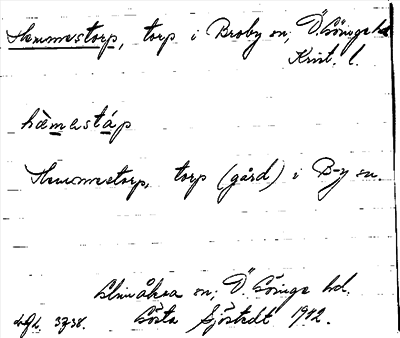 Hemmestorp, torp i Broby sn, Ö. Göinge hd
Krist. l.
hæ̀mestáp
Hemmestorp, torp (gård) i B-y sn.
Glimåkra sn, Ö. Göinge hd.
Gösta Sjöstedt 1942.